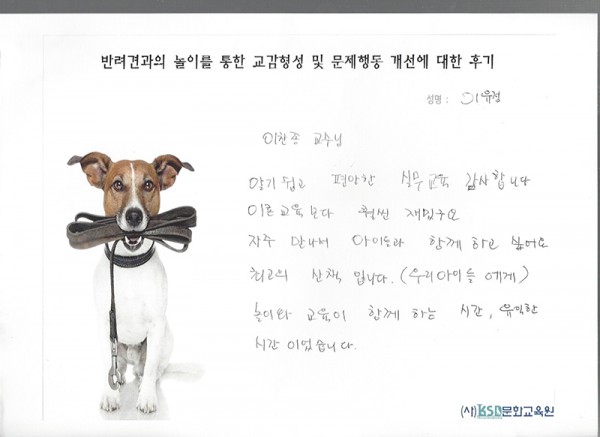 반려견과의 놀이를 통한 교감형성 및 문제행동 개선에 대한 후기
성명 : 이유정
이찬종 교수님
알기 쉽고 편안한 실무교육 감사합니다
이론교육보다 훨씬 재밌구요
자주 만나서 아이들과 함께 하고 싶어요
최고의 산책 입니다. (우리아이들 에게)
놀이와 교육이 함께 하는 시간, 유익한
시간 이었습니다.
(사)KSD문화교육원